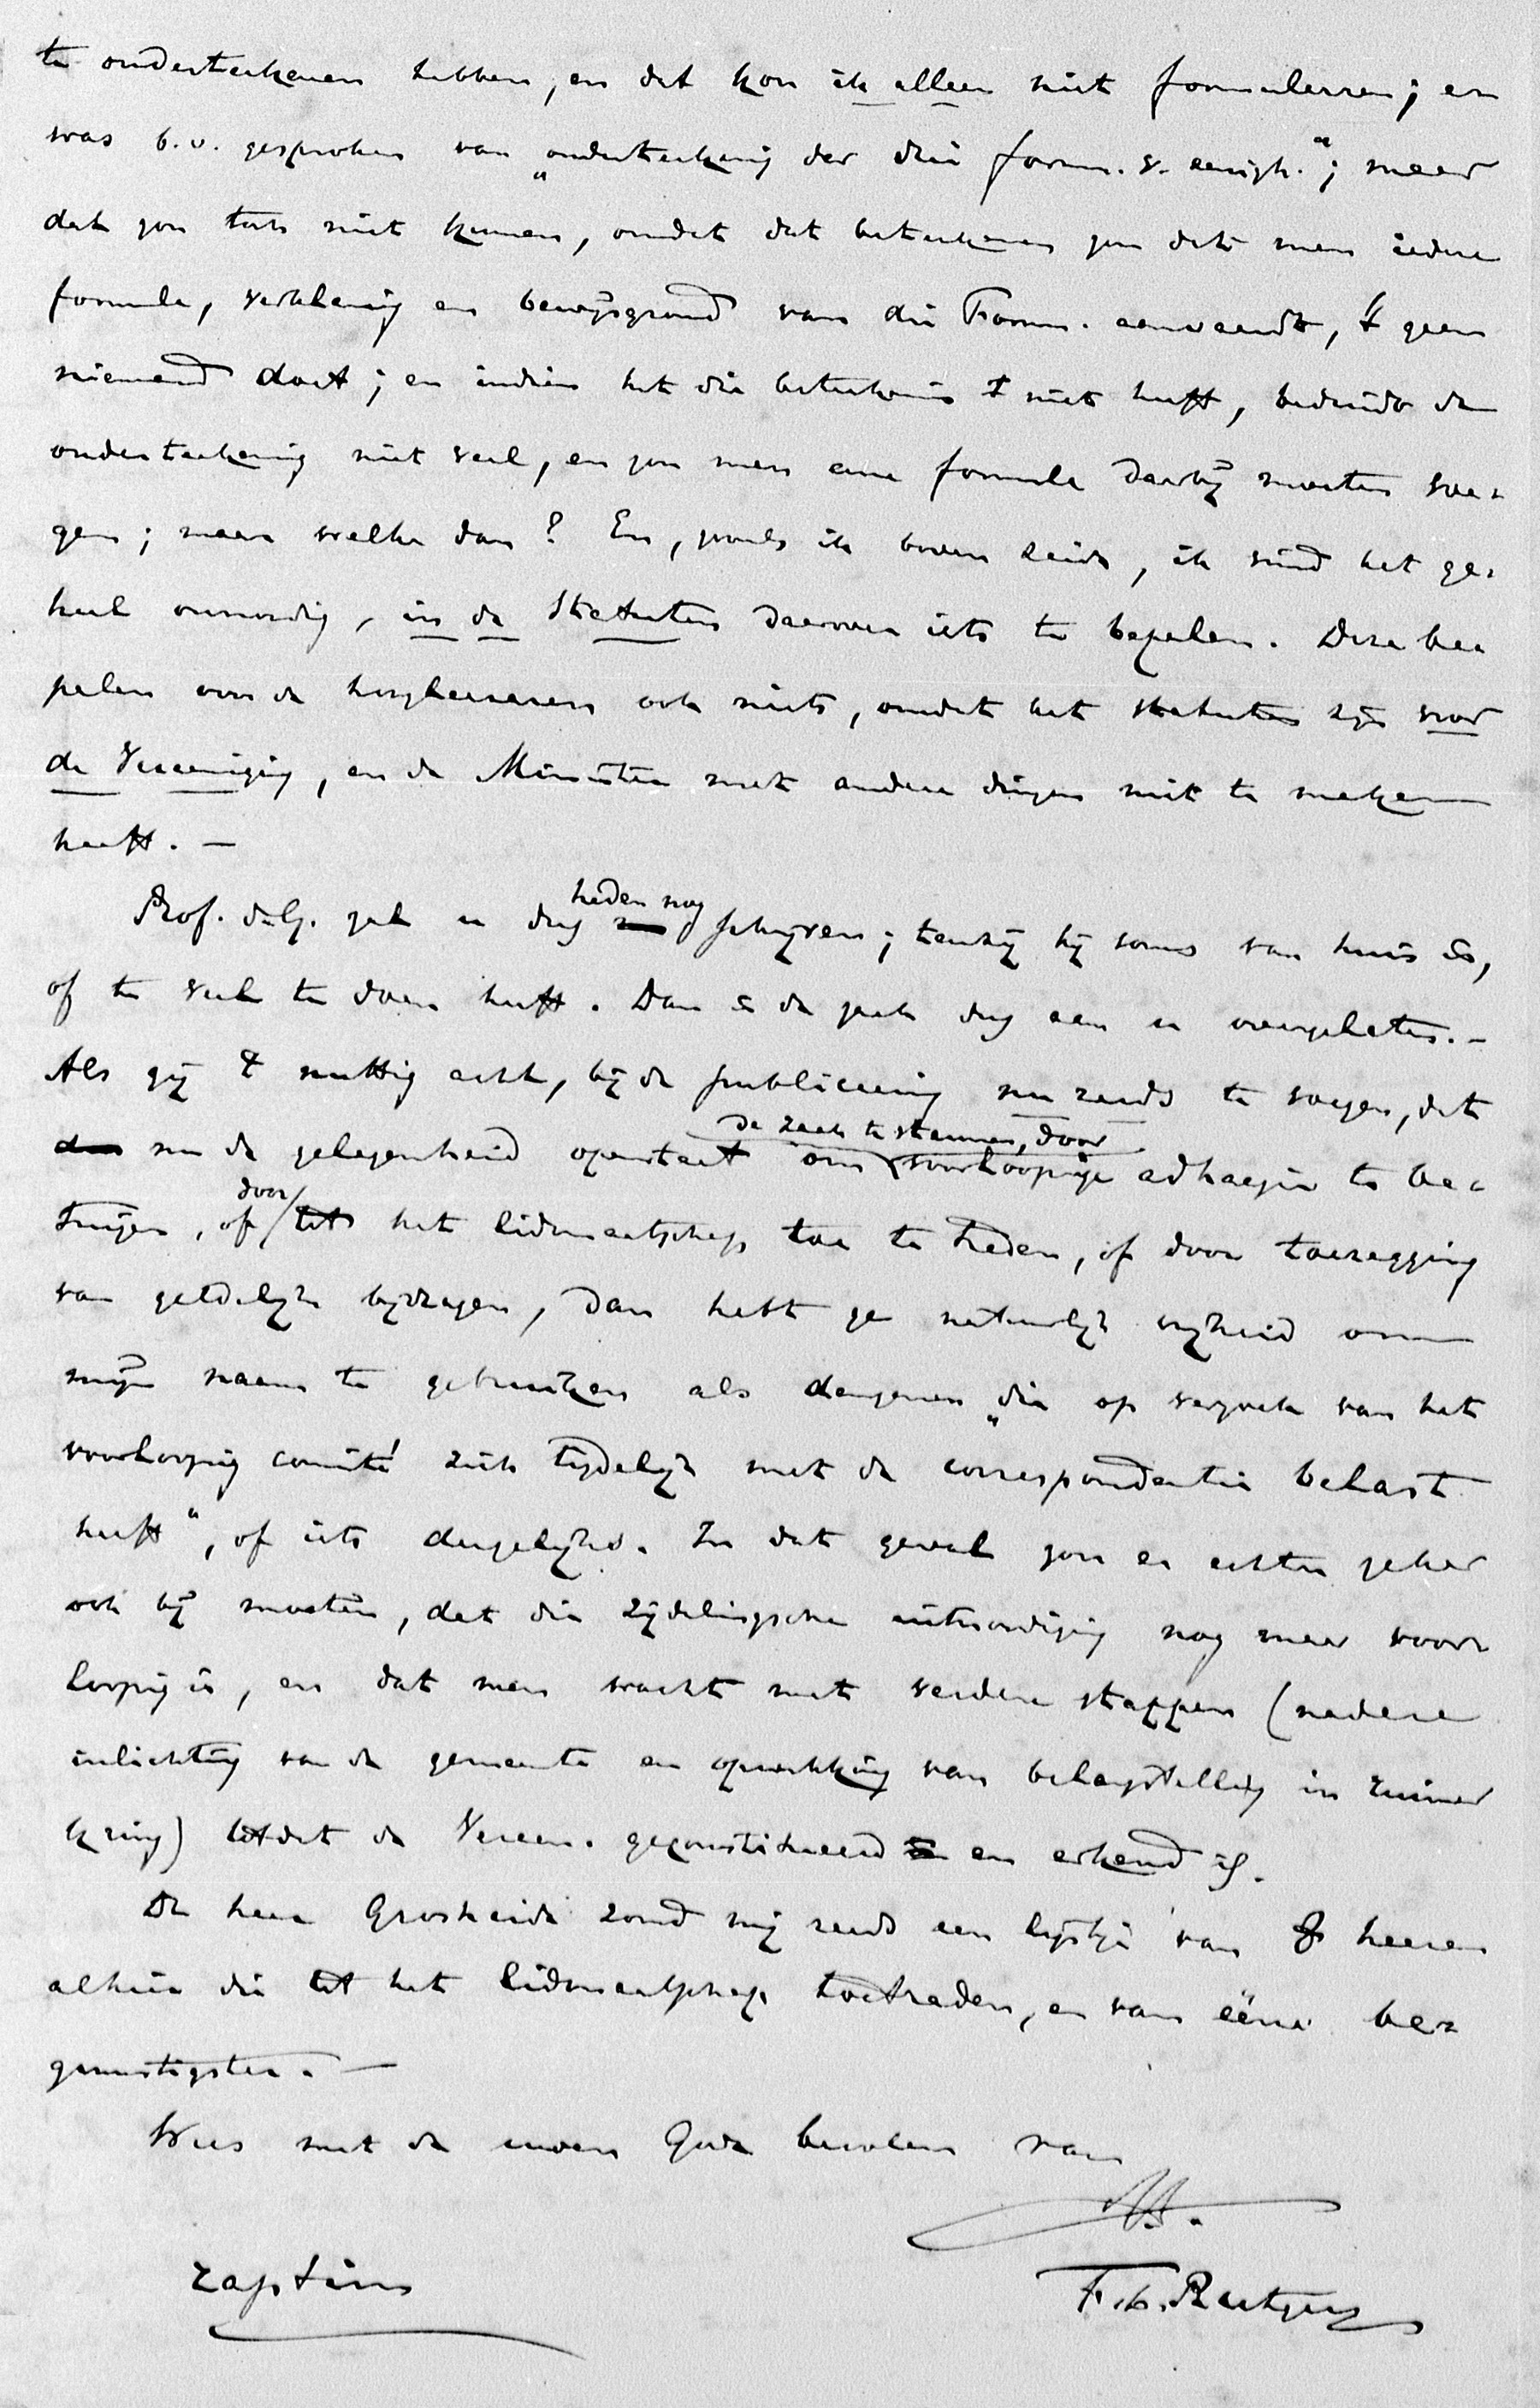 te onderteekenen hebben, en dat kon ik alleen niet formuleeren; er
was b.v. gesproken van „onderteekening der drie form. v. eenigh.“; maar
dat zou toch niet kunnen, omdat dat beteekenen zou dat men iedere
formule, verklaring en bewijsgrond van die Form. aanvaardt, 't geen
niemand doet; en indien het die beteekenis niet heeft, beduidt de
onderteekening niet veel, en zou men eene formule daarbij moeten voe-
gen; maar welke dan? En, zooals ik boven zeide, ik vind het ge-
heel onnoodig, in de Statuten daarover iets te bepalen. Deze be-
palen voor de hoogleeraren ook niets, omdat het statuten zijn voor
de Vereeniging, en de Minister met andere dingen niet te maken
heeft. —
Prof. de G. zal u dus heden nog schrijven; tenzij hij soms van huis is,
of te veel te doen heeft. Dan is de zaak dus aan u overgelaten. –
Als gij 't nuttig acht, bij de publiceering nu reeds te voegen, dat
nu de gelegenheid openstaat om de zaak te steunen, door voorloopige adhaesie te be-
tuigen, of door tot het lidmaatschap toe te treden, of door toezegging
van geldelijke bijdragen, dan hebt ge natuurlijk vrijheid om
mijn naam te gebruiken als dengenen „die op verzoek van het
voorloopig comité zich tijdelijk met de correspondentie belast
heeft“, of iets dergelijks. In dat geval zou er echter zeker
ook bij moeten, dat die zijdelingsche uitnoodiging nog maar voor-
loopig is, en dat men wacht met verdere stappen (nadere
inlichting van de gemeente en opwekking van belangstelling in ruimer
kring) totdat de Vereen. geconstitueerd en erkend is.
De heer Grosheide zond mij reeds een lijstje van 8 heeren
alhier die tot het lidmaatschap toetraden, en van ééne be-
gunstigster. —
Wees met de uwen Gode bevolen van
tt.
raptim
F. L. Rutgers